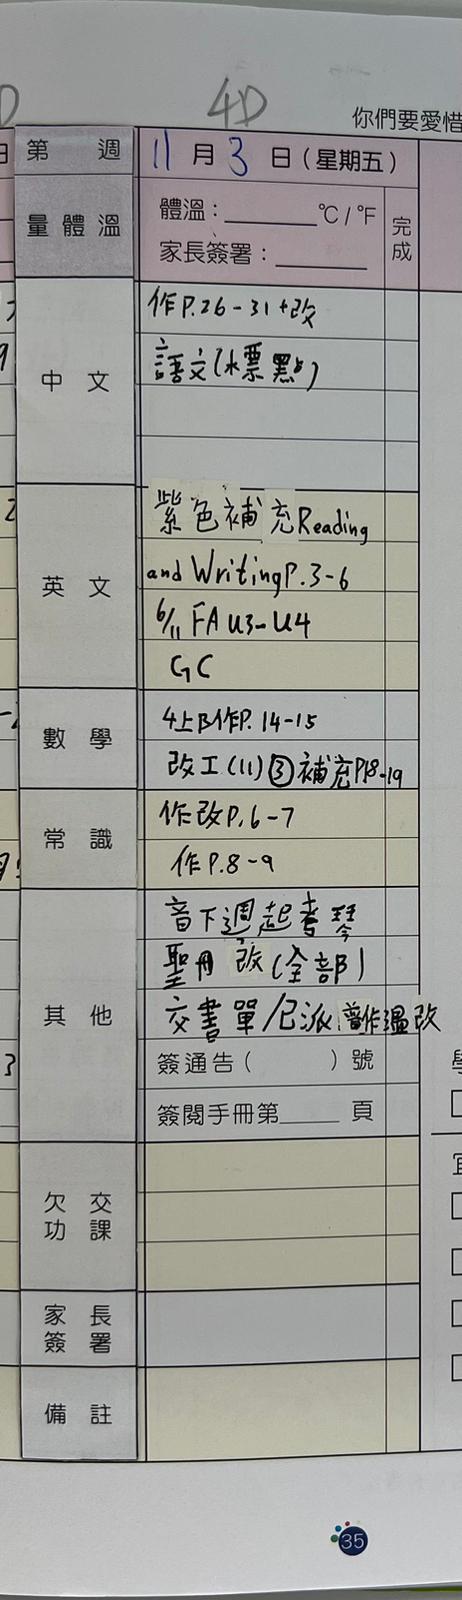 4D
你們要愛惜
第 週
11月3日(星期五)
量體溫
體溫：______°C/°F
家長簽署：______
完成
中文
作P.26-31+改
語文(標點)
英文
紫色補充Reading
and Writing P.3-6
6/11 FA U3-U4
GC
數學
4上B作P.14-15
改工(11)③補充P18-19
常識
作改P.6-7
作P.8-9
其他
音下週起考琴
聖冊改(全部)
交書單/已派
作溫改
簽通告( )號
簽閱手冊第____頁
欠交功課
家長簽署
備註
35